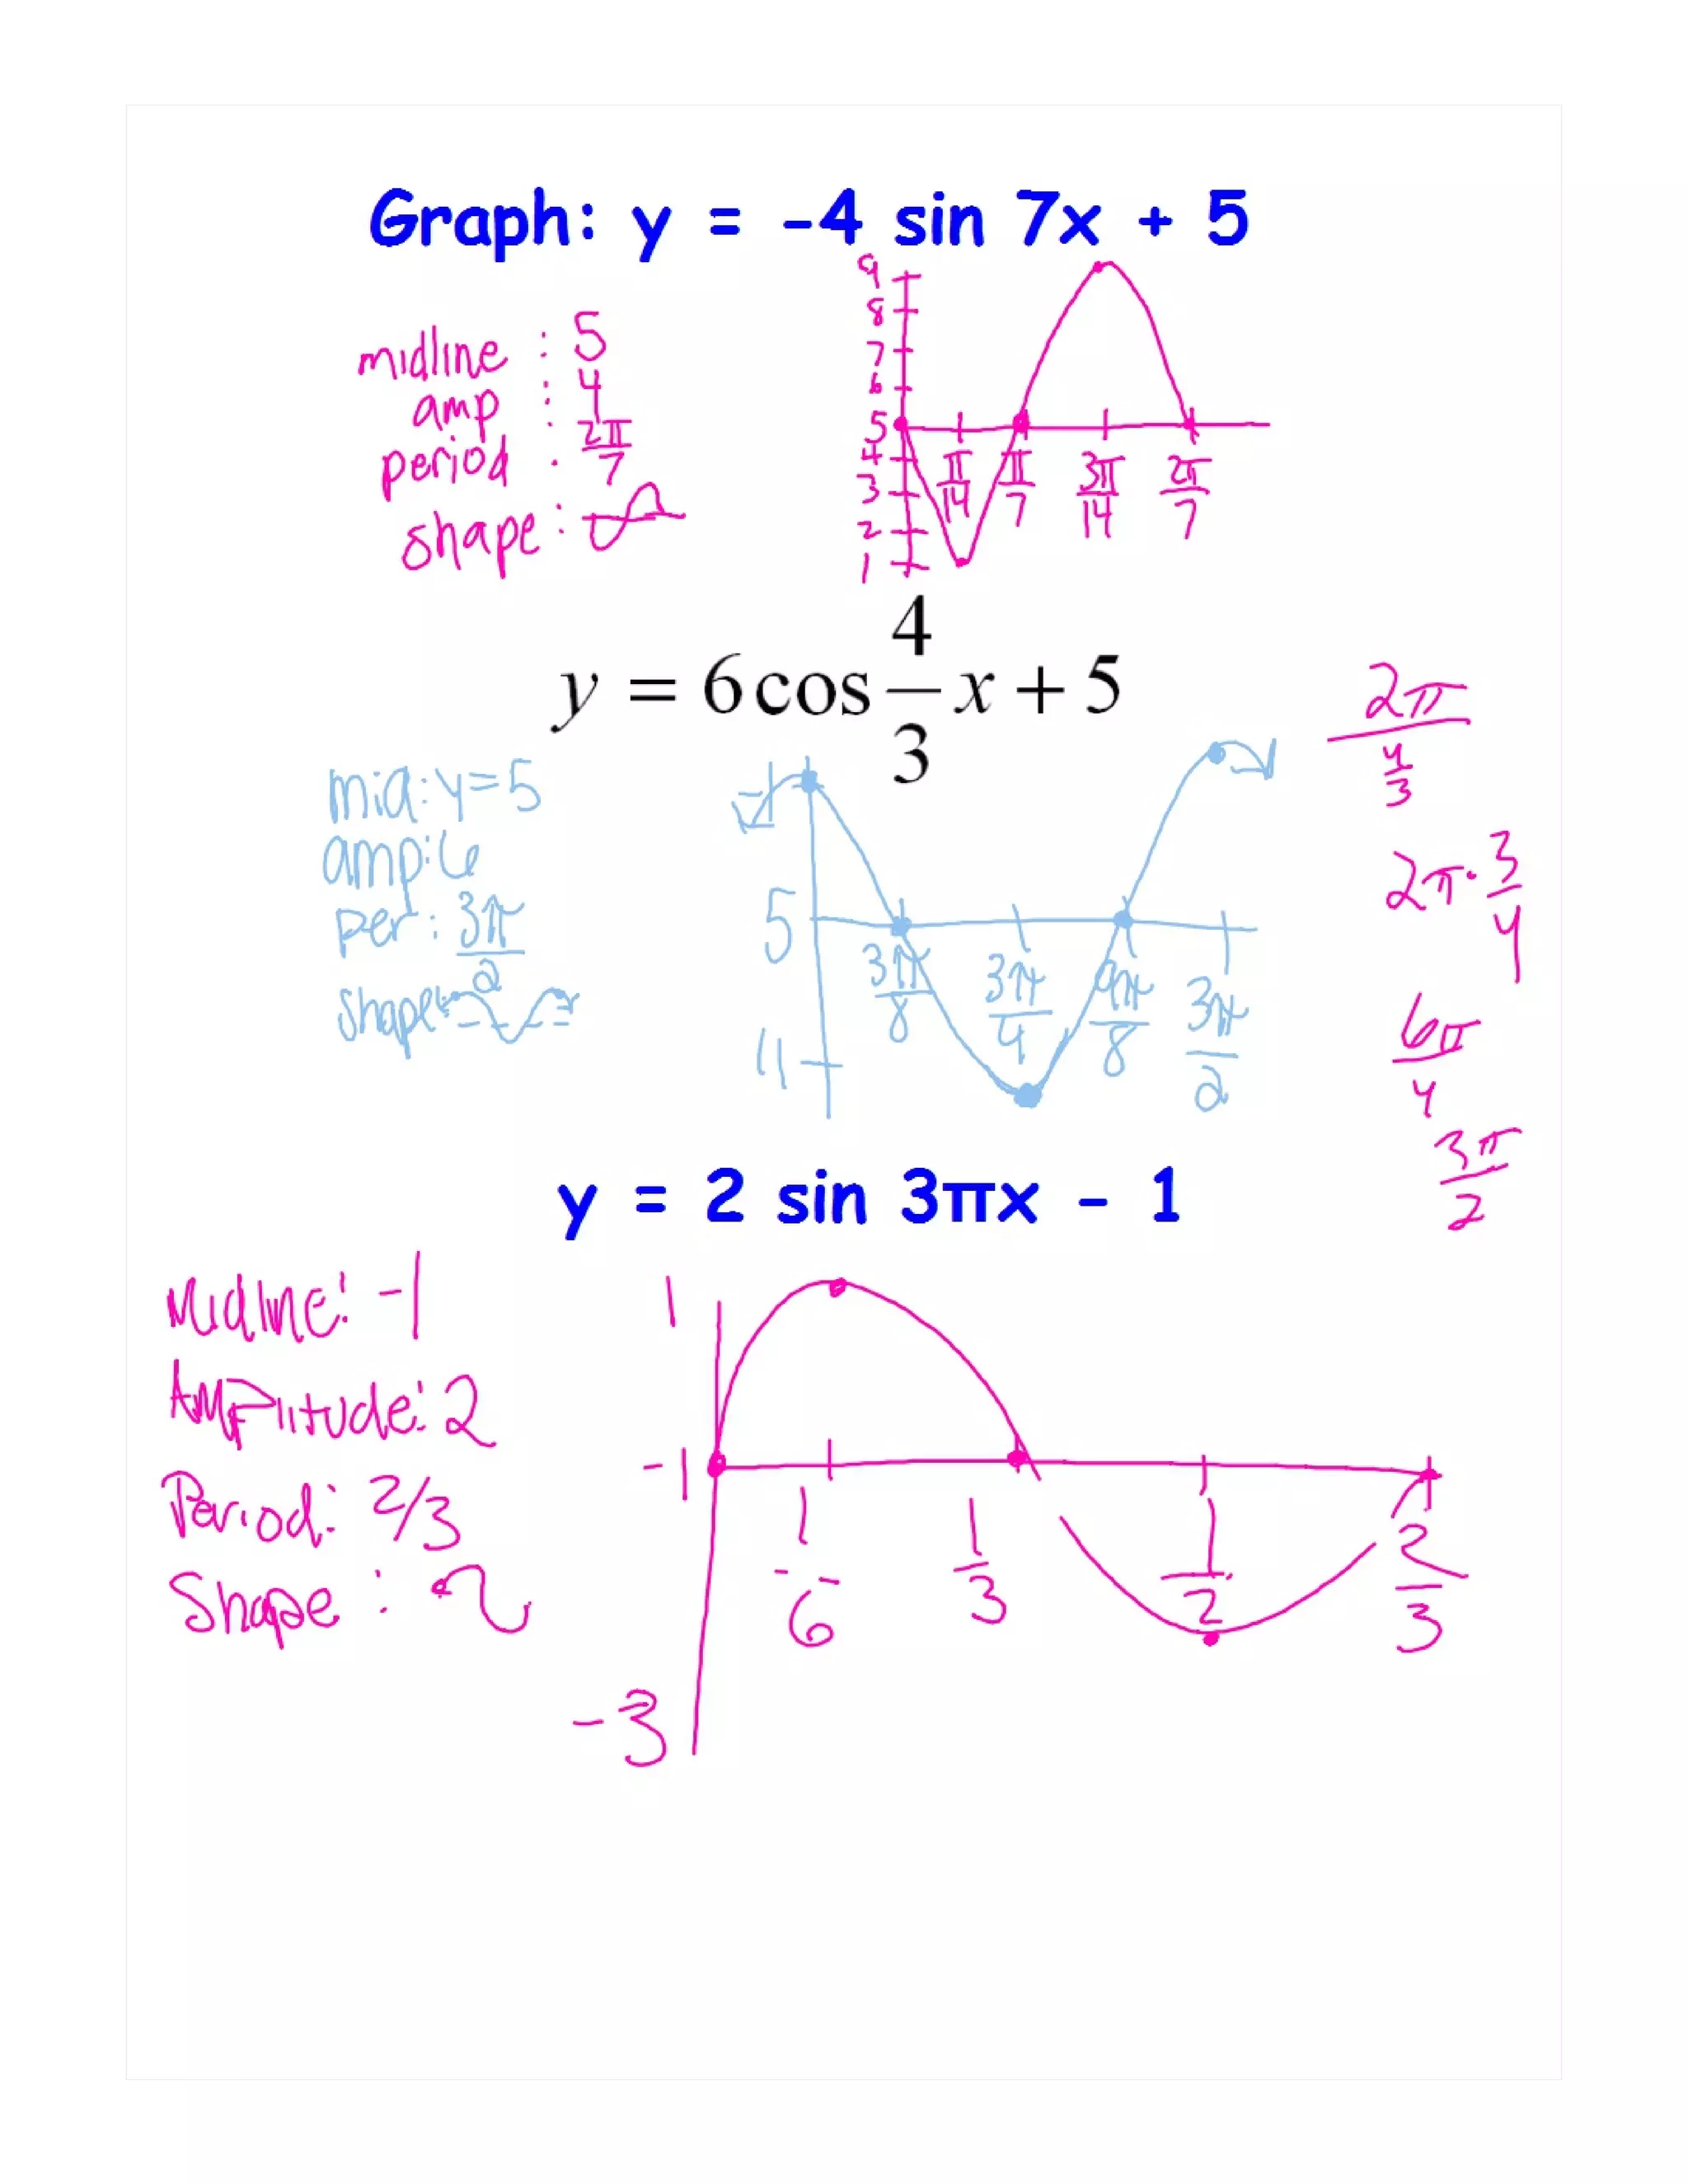 Graph: y = -4 sin 7x + 5
midline : 5
amp : 4
period : 2π/7
shape :
9
8
7
6
5
4
3
2
1
π/14 π/7 3π/14 2π/7
y = 6 cos 4/3 x + 5
mid: y = 5
amp: 6
per: 3π/2
shape:
-1
5
11
3π/8 3π/4 9π/8 3π/2
2π/(4/3)
2π · 3/4
6π/4
3π/2
y = 2 sin 3πx - 1
Midline: -1
Amplitude: 2
Period: 2/3
Shape :
1
-1
-3
1/6 1/3 1/2 2/3